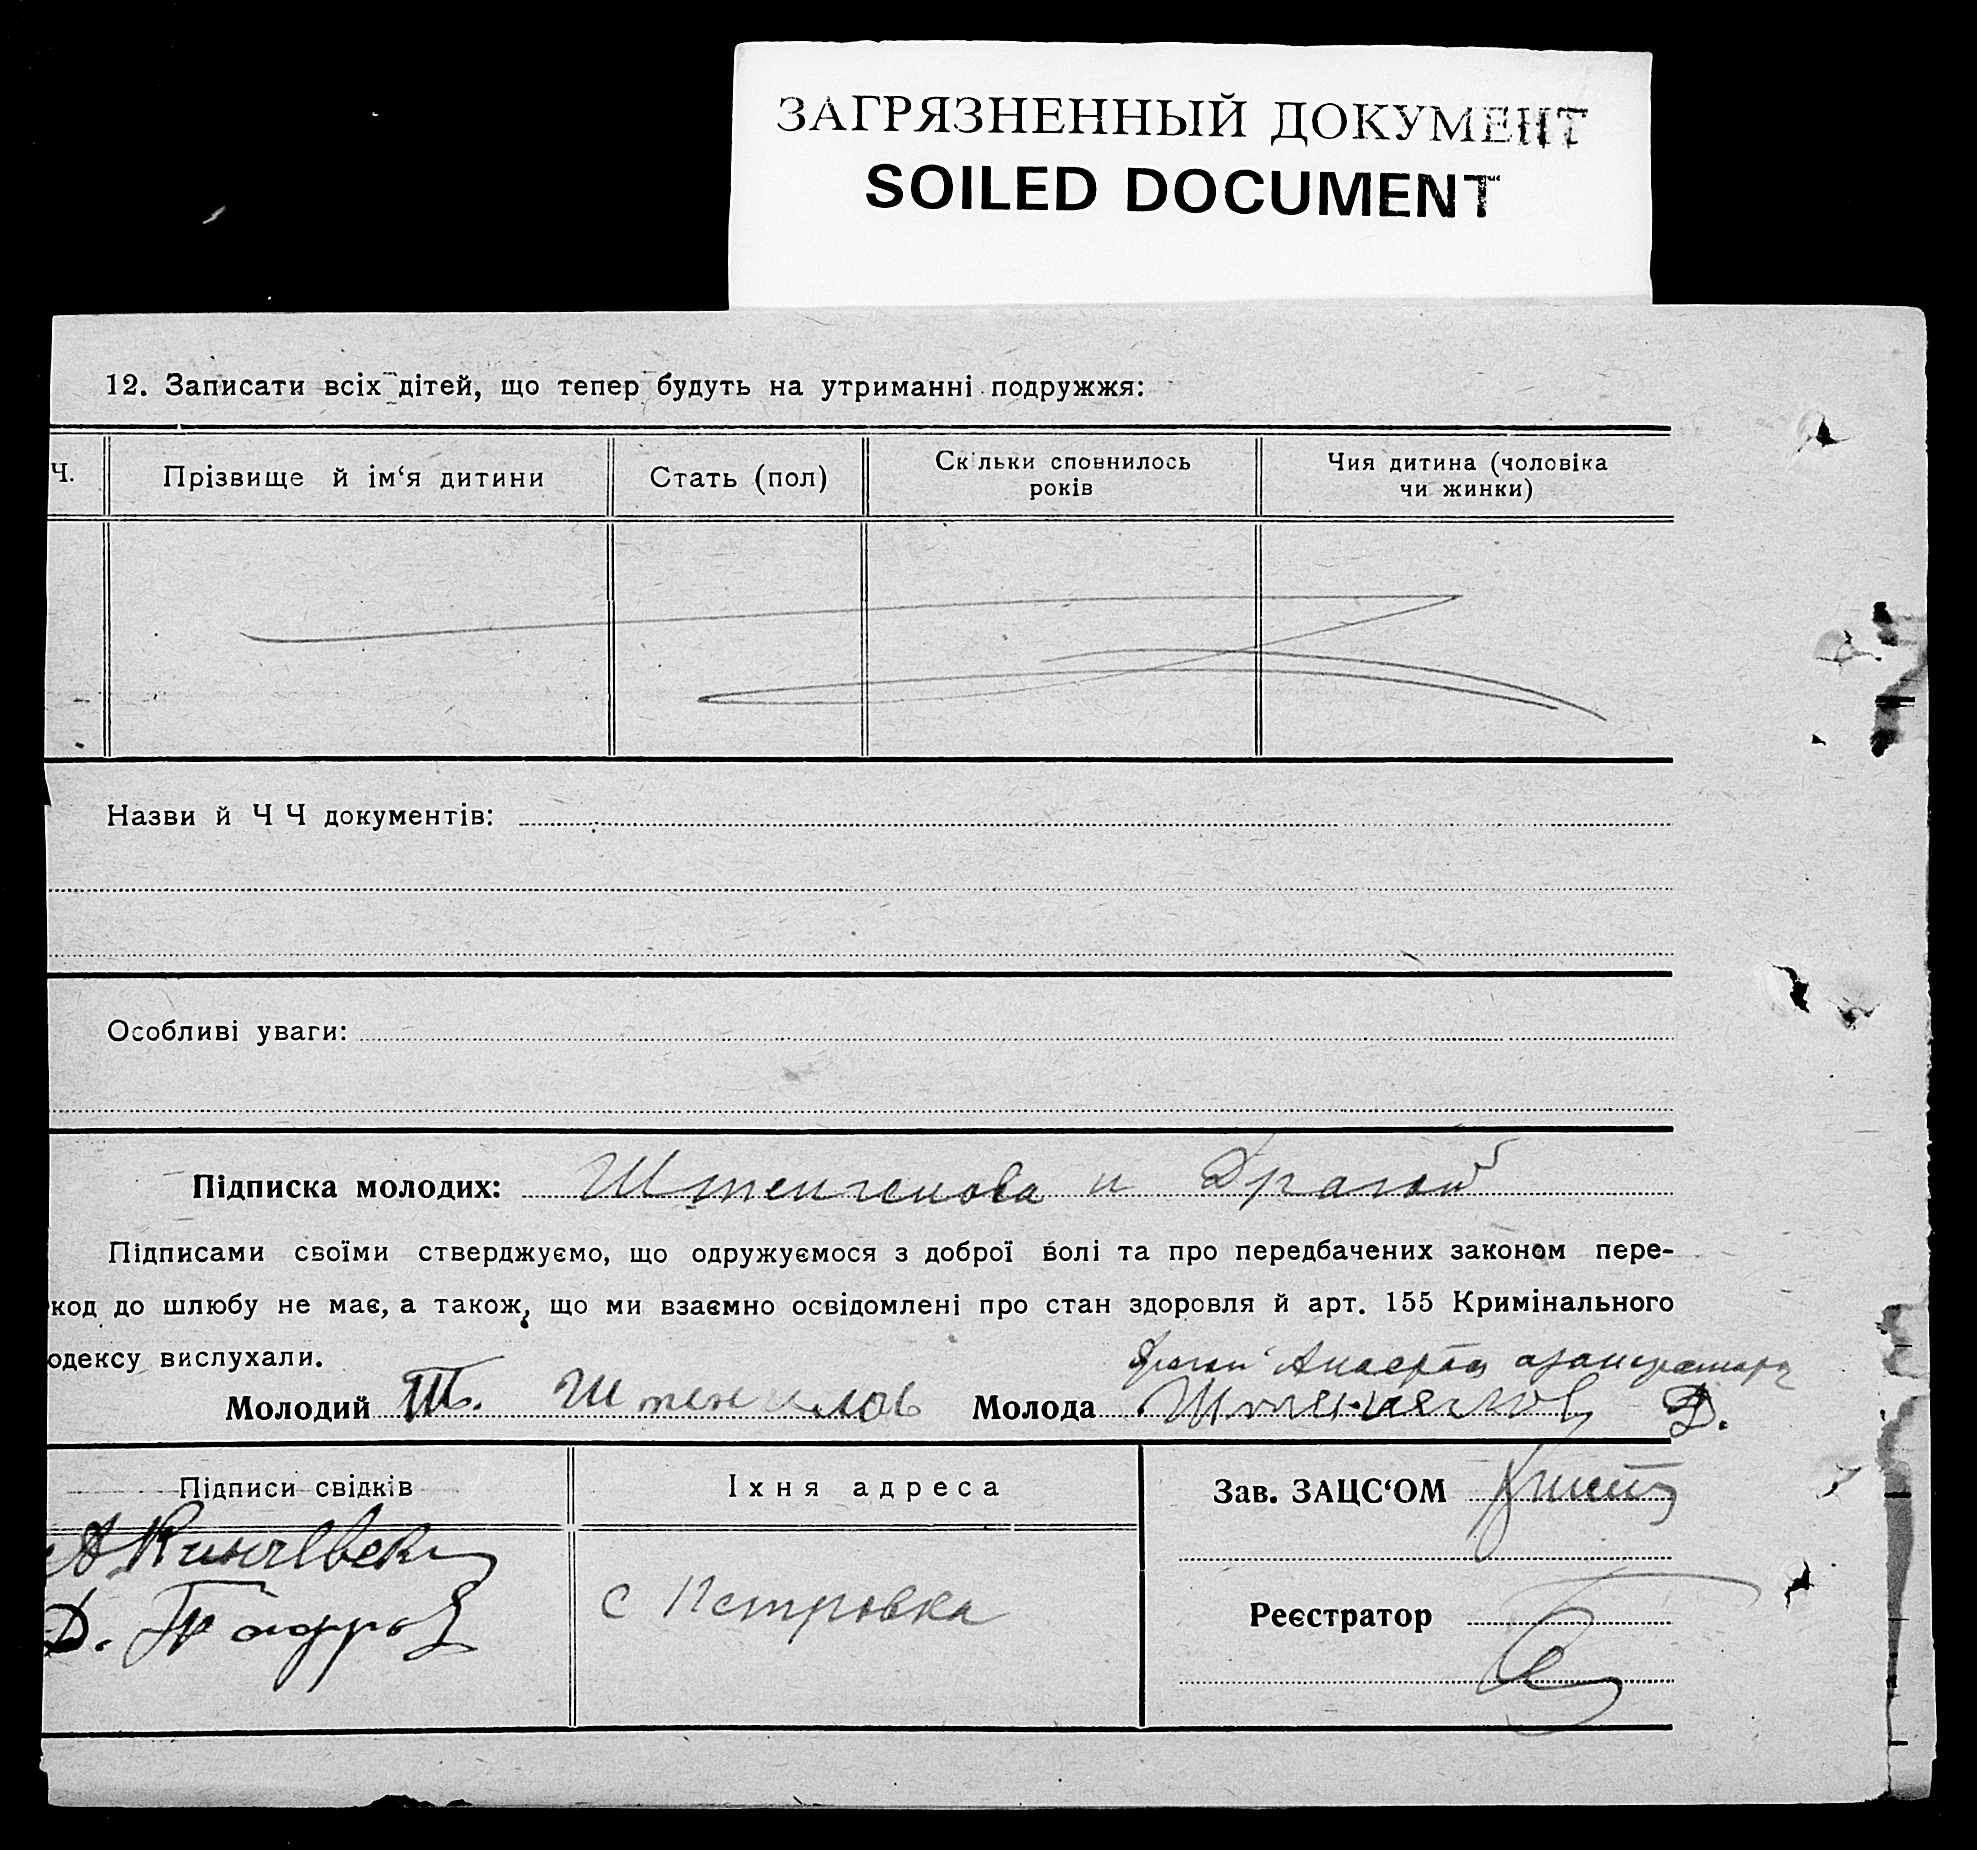 ЗАГРЯЗНЕННЫЙ ДОКУМЕНТ
SOILED DOCUMENT
12. Записати всіх дітей, що тепер будуть на утриманні подружжя:
Ч.
Прізвище й ім‘я дитини
Стать (пол)
Скільки сповнилось
років
Чия дитина (чоловіка
чи жинки)
Назви й Ч Ч документів:
Особливі уваги:
Підписка молодих: и Драгой
Підписами своїми стверджуємо, що одружуємося з доброї волі та про передбачених законом пере-
код до шлюбу не має, а також, що ми взаємно освідомлені про стан здоровля й арт. 155 Кримінального
одексу вислухали.
Молодий Ш.
Молода Д.
Підписи свідків
Їхня адреса
Зав. ЗАЦС‘ОМ
Д.
с Петровка
Реєстратор